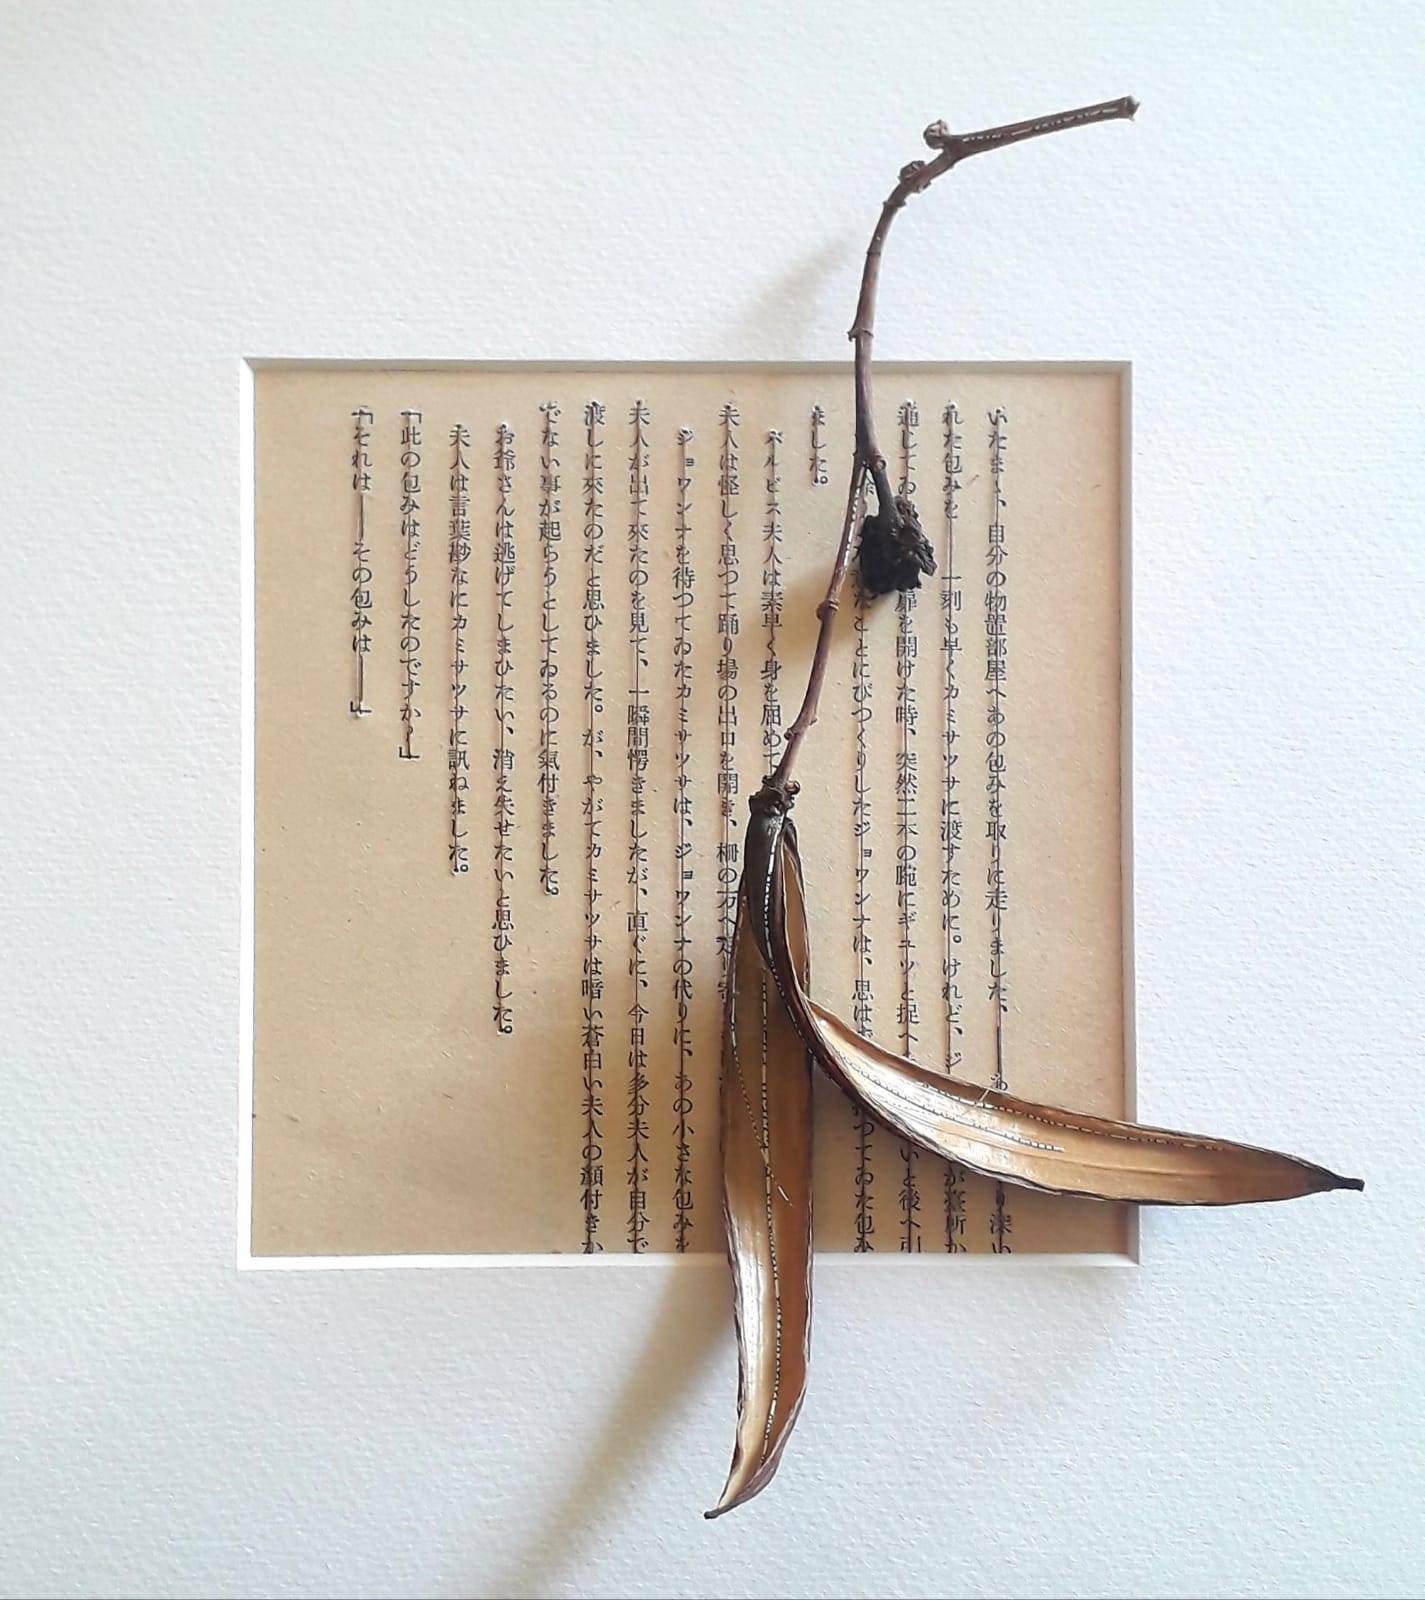 いたまゝ、自分の物置部屋へあの包みを取りに走りました、――あ り深い
れた包みを――一刻も早くカミサツサに渡すために。けれど、ジ が臺所か
通してゐ 扉を開けた時、突然二本の腕にギュツと捉へ いと後へ引
たことにびつくりしたジョワンナは、思は つてゐた包み
ました。
ベルビス夫人は素早く身を屈めて
夫人は怪しく思つて踊り場の出口を開き、柵の方へ走り寄
ジョワンナを待つてゐたカミサツサは、ジョワンナの代りに、あの小さな包みを
夫人が出て來たのを見て、一瞬間愕きましたが、直ぐに、今日は多分夫人が自分で
渡しに來たのだと思ひました。が、やがてカミサツサは暗い蒼白い夫人の顏付きか
でない事が起らうとしてゐるのに氣付きました。
お爺さんは逃げてしまひたい、消え失せたいと思ひました。
夫人は言葉尠なにカミサツサに訊ねました。
「此の包みはどうしたのですか?」
「それは――その包みは――」